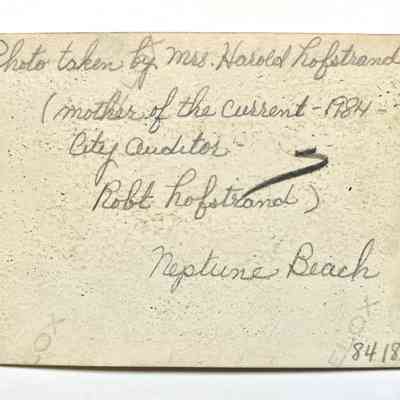 Photo taken by Mrs. Harold Hofstrand
(mother of the current - 1984 -
City Auditor -
Robt Hofstrand)
Neptune Beach
VELOX
8418